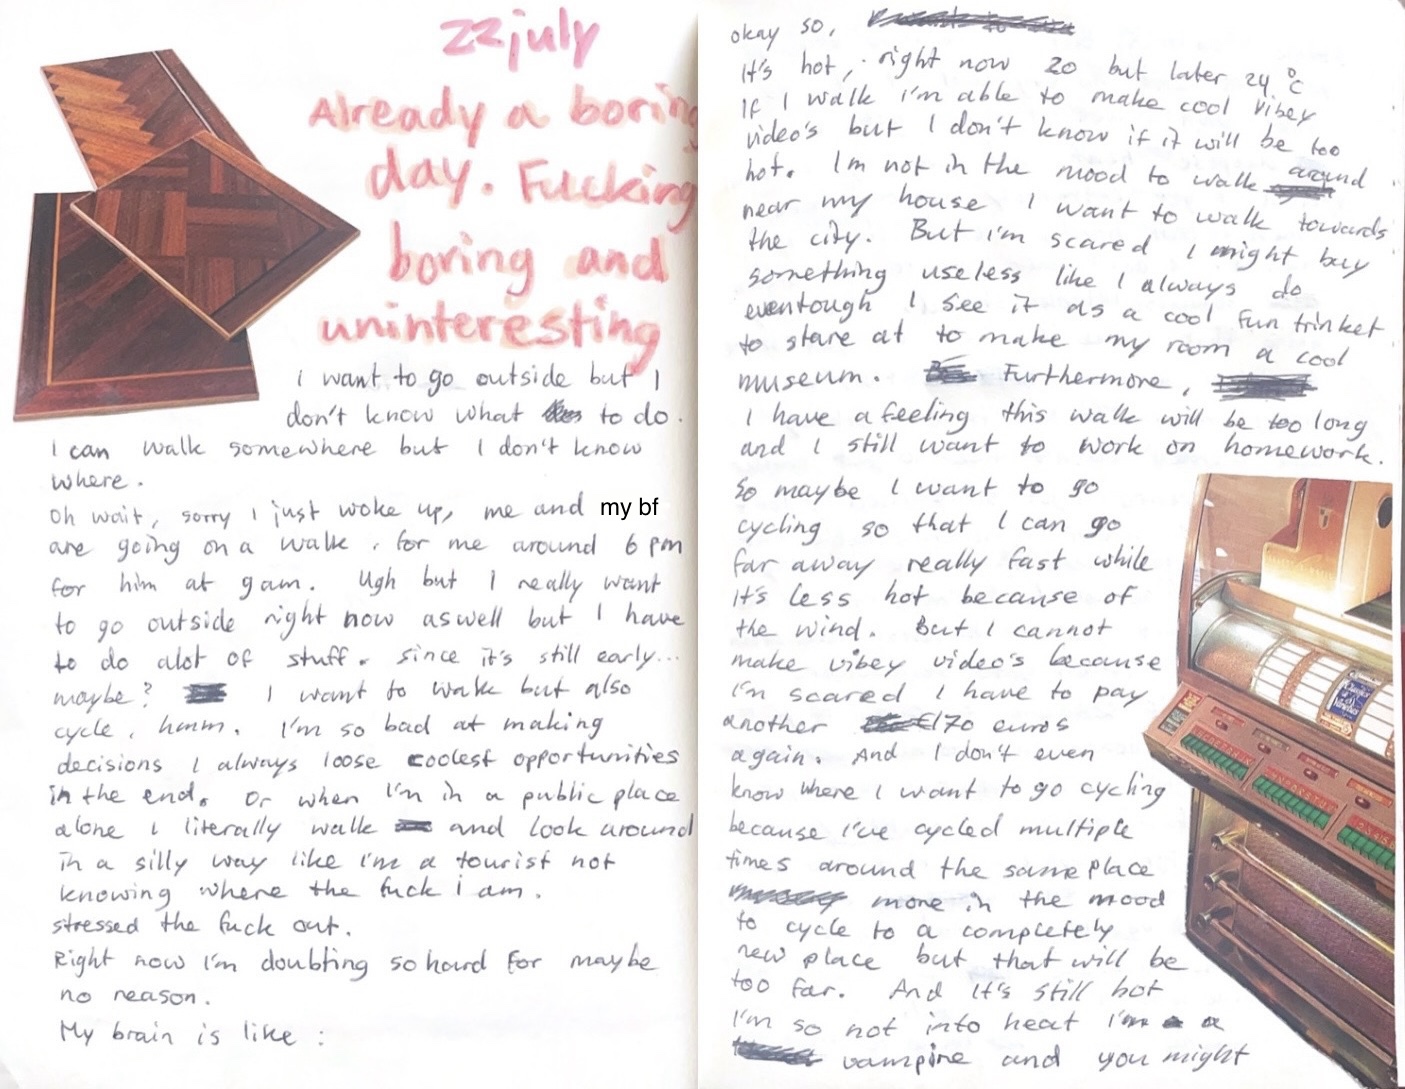 22july
Already a boring
day. Fucking
boring and
uninteresting
i want to go outside but I
don't know what to do.
I can walk somewhere but I don't know
where.
Oh wait, sorry I just woke up, me and my bf
are going on a walk. for me around 6 pm
for him at 9am. Ugh but I really want
to go outside right now aswell but I have
to do alot of stuff. since it's still early...
maybe? I want to walk but also
cycle, hmm. I'm so bad at making
decisions I always loose coolest opportunities
in the end. Or when I'm in a public place
alone I literally walk and look around
in a silly way like I'm a tourist not
knowing where the fuck i am.
stressed the fuck out.
Right now I'm doubting so hard for maybe
no reason.
My brain is like :
okay so,
It's hot, right now 20 but later 24 °C
If I walk I'm able to make cool vibey
video's but I don't know if it will be too
hot. Im not in the mood to walk around
near my house I want to walk towards
the city. But i'm scared I might buy
something useless like I always do
eventough I see it as a cool fun trinket
to stare at to make my room a cool
museum. Furthermore,
I have a feeling this walk will be too long
and I still want to work on homework.
So maybe I want to go
cycling so that I can go
far away really fast while
It's less hot because of
the wind. But I cannot
make vibey video's because
I'm scared I have to pay
another €170 euros
again. And I don't even
know where I want to go cycling
because I've cycled multiple
times around the same place
more in the mood
to cycle to a completely
new place but that will be
too far. And It's still hot
I'm so not into heat I'm a
vampire and you might